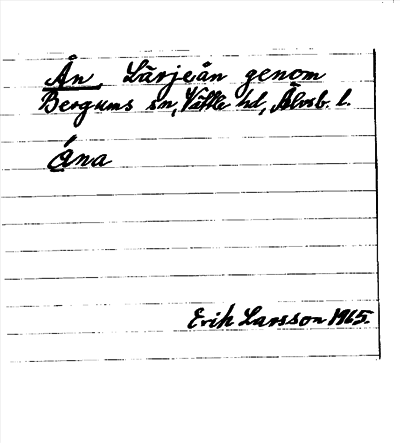 Ån, Lärjeån genom
Bergums sn, Vättle hd, Älvsb. l.
Åna
Erik Larsson 1965.